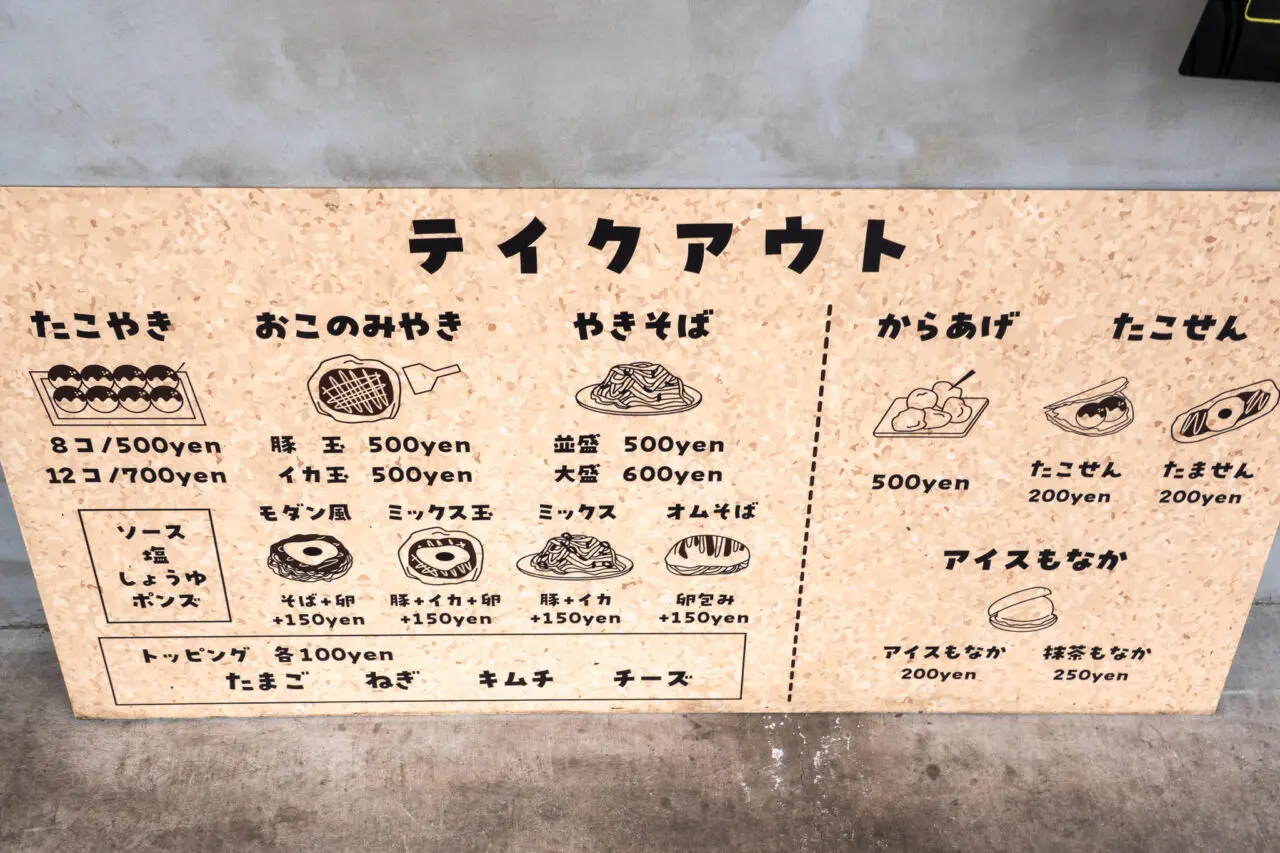 テイクアウト
たこやき
8コ/500yen
12コ/700yen
ソース
塩
しょうゆ
ポンズ
おこのみやき
豚玉 500yen
イカ玉 500yen
モダン風
そば+卵
+150yen
ミックス玉
豚+イカ+卵
+150yen
やきそば
並盛 500yen
大盛 600yen
ミックス
豚+イカ
+150yen
オムそば
卵包み
+150yen
トッピング 各100yen
たまご ねぎ キムチ チーズ
からあげ
500yen
たこせん
たこせん
200yen
たません
200yen
アイスもなか
アイスもなか
200yen
抹茶もなか
250yen